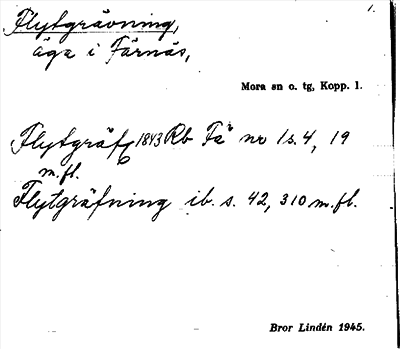 1.
Flytgrävning,
äga i Färnäs,
Mora sn o. tg, Kopp. l.
Flytgräf 1843 Rb Fä nr 1 s. 4, 19
m.fl.
Flytgräfning ib. s. 42, 310 m.fl.
Bror Lindén 1945.